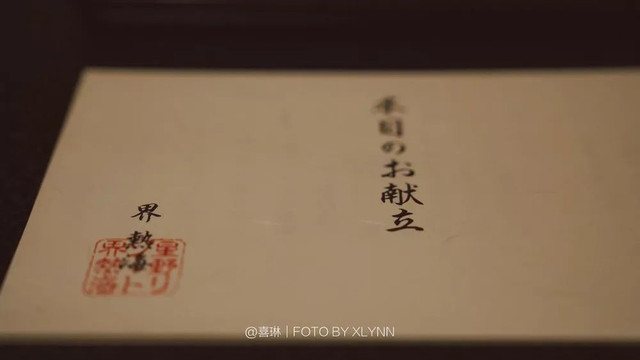 本日のお献立
界 熱海
星野リ
ト界熱海
@喜琳 | FOTO BY XLYNN